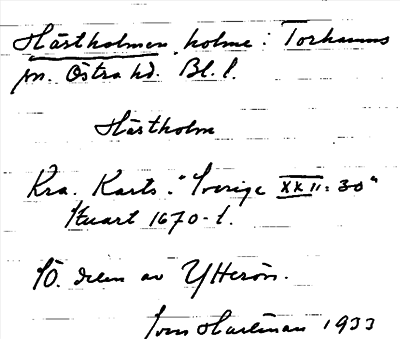 Hästholmen, holme i Torhamns
sn. Östra hd. Bl. l.
Hästholm
Kra. Karts. "Sverige XXII: 30"
Stuart 1670-t.
SÖ. delen av Ytterön.
Sven Hartman 1933